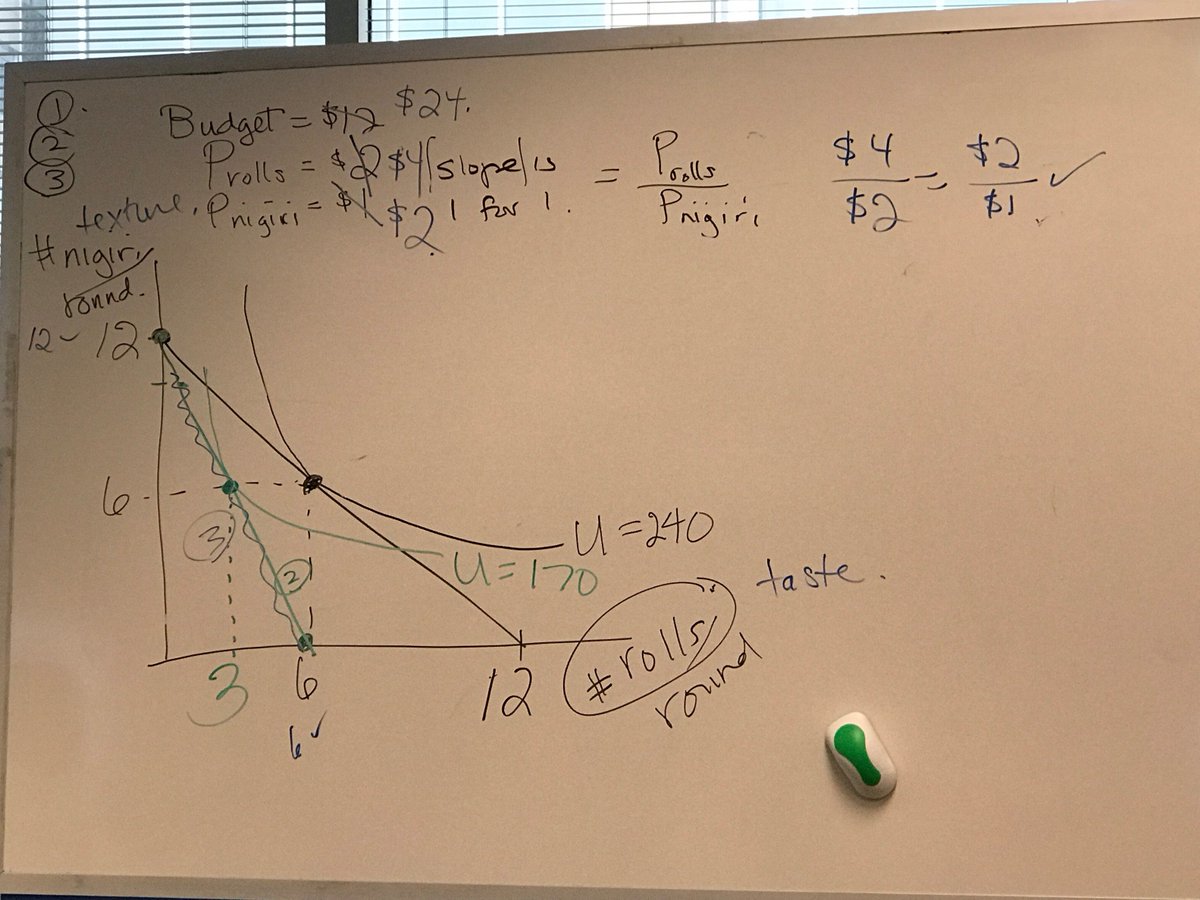 ①.
②
③
Budget = $12 $24.
Prolls = $2 $4 |slope| is = Prolls / Pnigiri $4 / $2 = $2 / $1 ✓
texture, Pnigiri = $1 $2 1 for 1.
#nigiri/
round.
12 - 12
6
③
②
U=240
U=170
taste.
3 6 12 #rolls/
round
6 ✓